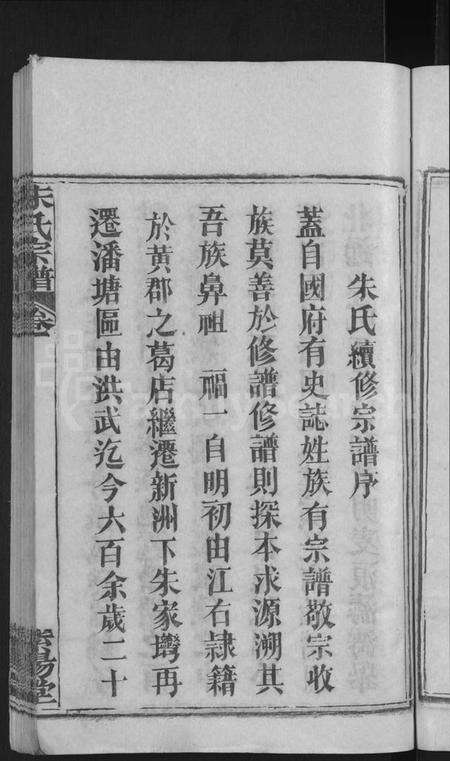 朱氏續修宗譜序
蓋自國府有史誌姓族有宗譜敬宗收
族莫善於修譜修譜則探本求源溯其
吾族鼻祖 福一自明初由江右隸籍
於黃郡之葛店繼遷新洲下朱家塆再
遷潘塘區由洪武迄今六百余歲二十
朱氏宗譜 卷
紫陽堂